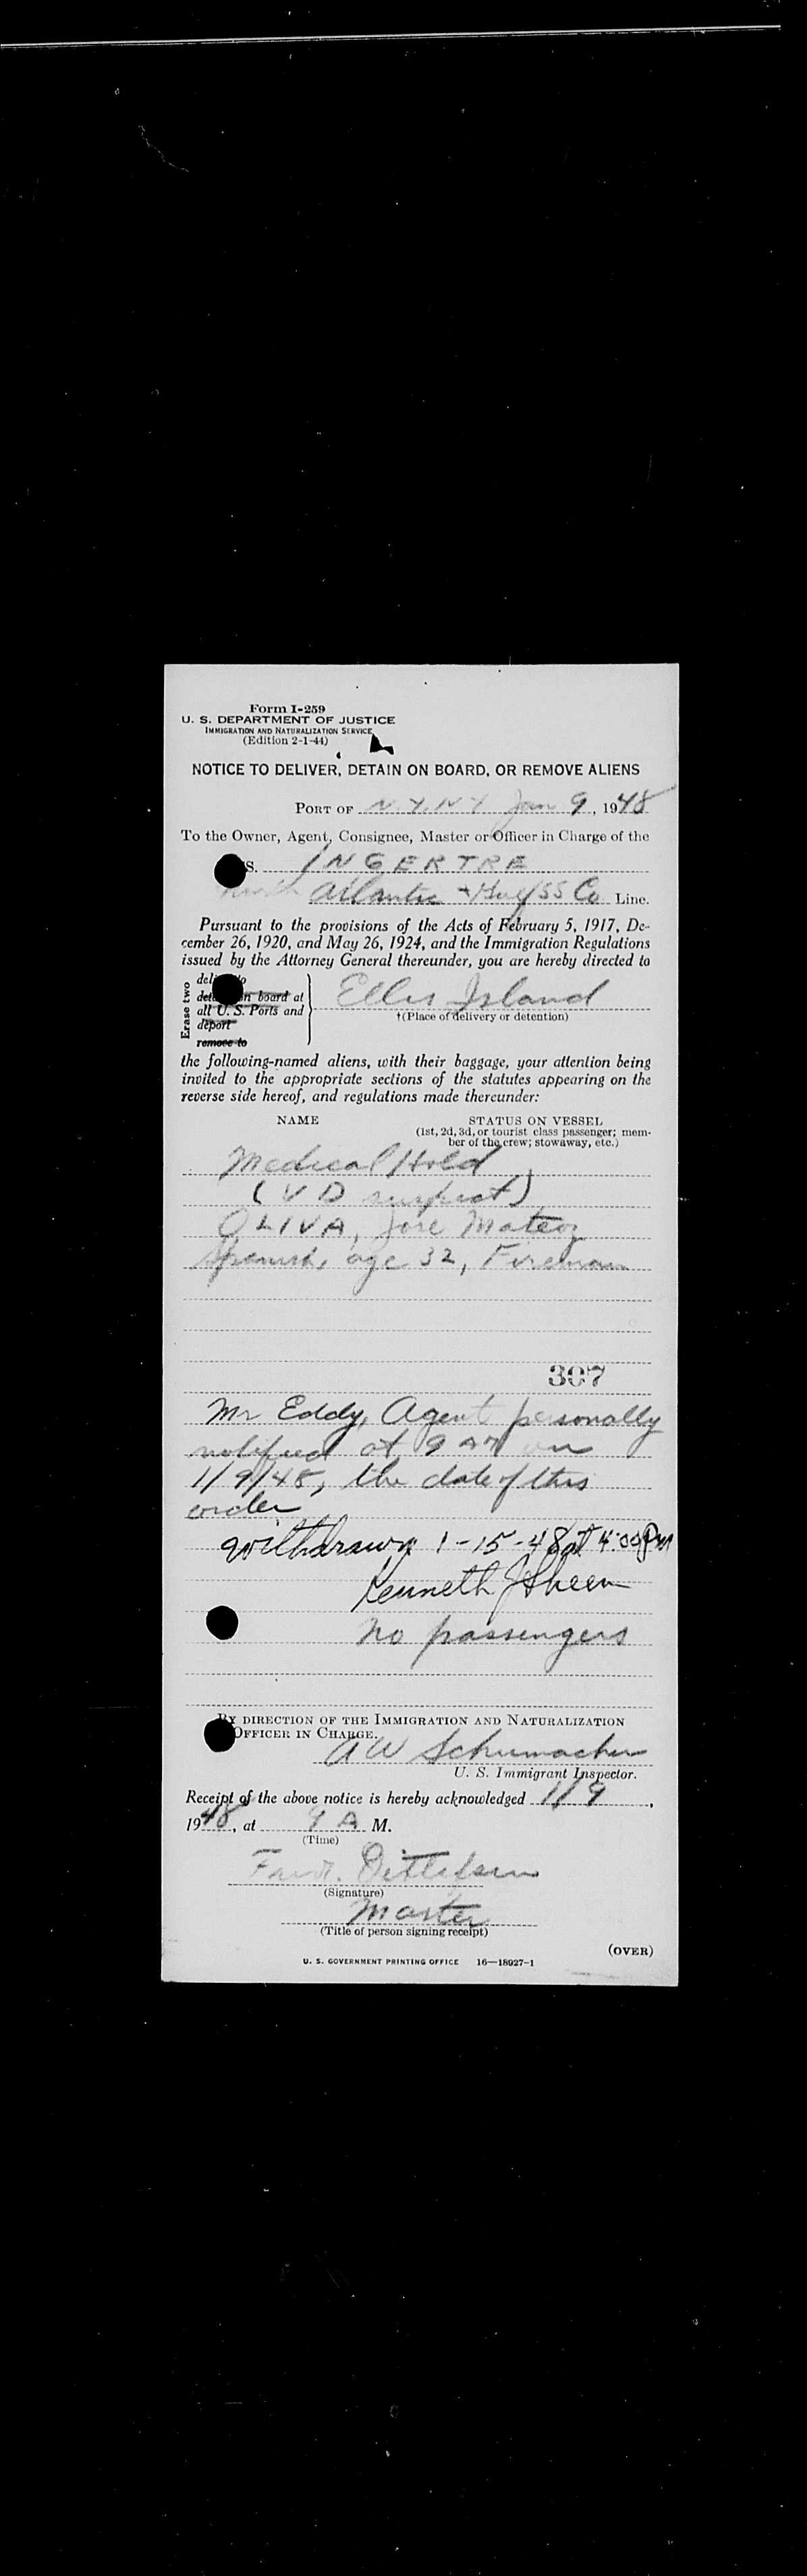 Form I-259
U. S. DEPARTMENT OF JUSTICE
IMMIGRATION AND NATURALIZATION SERVICE
(Edition 2-1-44)
NOTICE TO DELIVER, DETAIN ON BOARD, OR REMOVE ALIENS
PORT OF N.Y. N.Y Jan 9, 1948
To the Owner, Agent, Consignee, Master or Officer in Charge of the
S. INGERTRE
North Atlantic + Gulf SS Co Line.
Pursuant to the provisions of the Acts of February 5, 1917, De-
cember 26, 1920, and May 26, 1924, and the Immigration Regulations
issued by the Attorney General thereunder, you are hereby directed to
Erase two
deliver to
detain on board at
all U. S. Ports and
deport
remove to
Ellis Island
†(Place of delivery or detention)
the following-named aliens, with their baggage, your attention being
invited to the appropriate sections of the statutes appearing on the
reverse side hereof, and regulations made thereunder:
NAME STATUS ON VESSEL
(1st, 2d, 3d, or tourist class passenger; mem-
ber of the crew; stowaway, etc.)
Medical Hold
(V D suspect)
OLIVA, Jose Mateo
Spanish, age 32, Fireman
307
Mr Eddy, Agent personally
notified at 9 am on
1/9/48, the date of this
order
Withdrawn 1-15-48 at 4:00 PM
Kenneth J Sheen
No passengers
BY DIRECTION OF THE IMMIGRATION AND NATURALIZATION
OFFICER IN CHARGE.
A W Schumacher
U. S. Immigrant Inspector.
Receipt of the above notice is hereby acknowledged 1/9,
1948, at 9 A M.
(Time)
Ditlefsen
(Signature)
Master
(Title of person signing receipt)
(OVER)
U. S. GOVERNMENT PRINTING OFFICE 16—18027-1